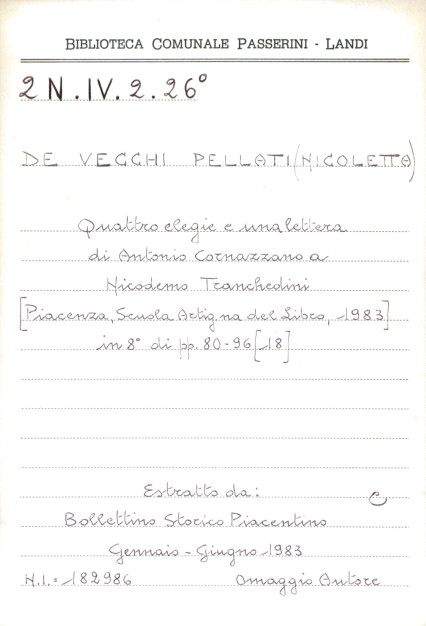 BIBLIOTECA COMUNALE PASSERINI - LANDI
2 N.IV.2.26°
DE VECCHI PELLATI (NICOLETTA)
Quattro elegie e una lettera
di Antonio Cornazzano a
Nicodemo Tranchedini
[Piacenza, Scuola Artig.na del Libro, 1983]
in 8° di pp. 80-96 [18]
Estratto da:
Bollettino Storico Piacentino
Gennaio - Giugno 1983
N.I.= 182986 Omaggio Autore